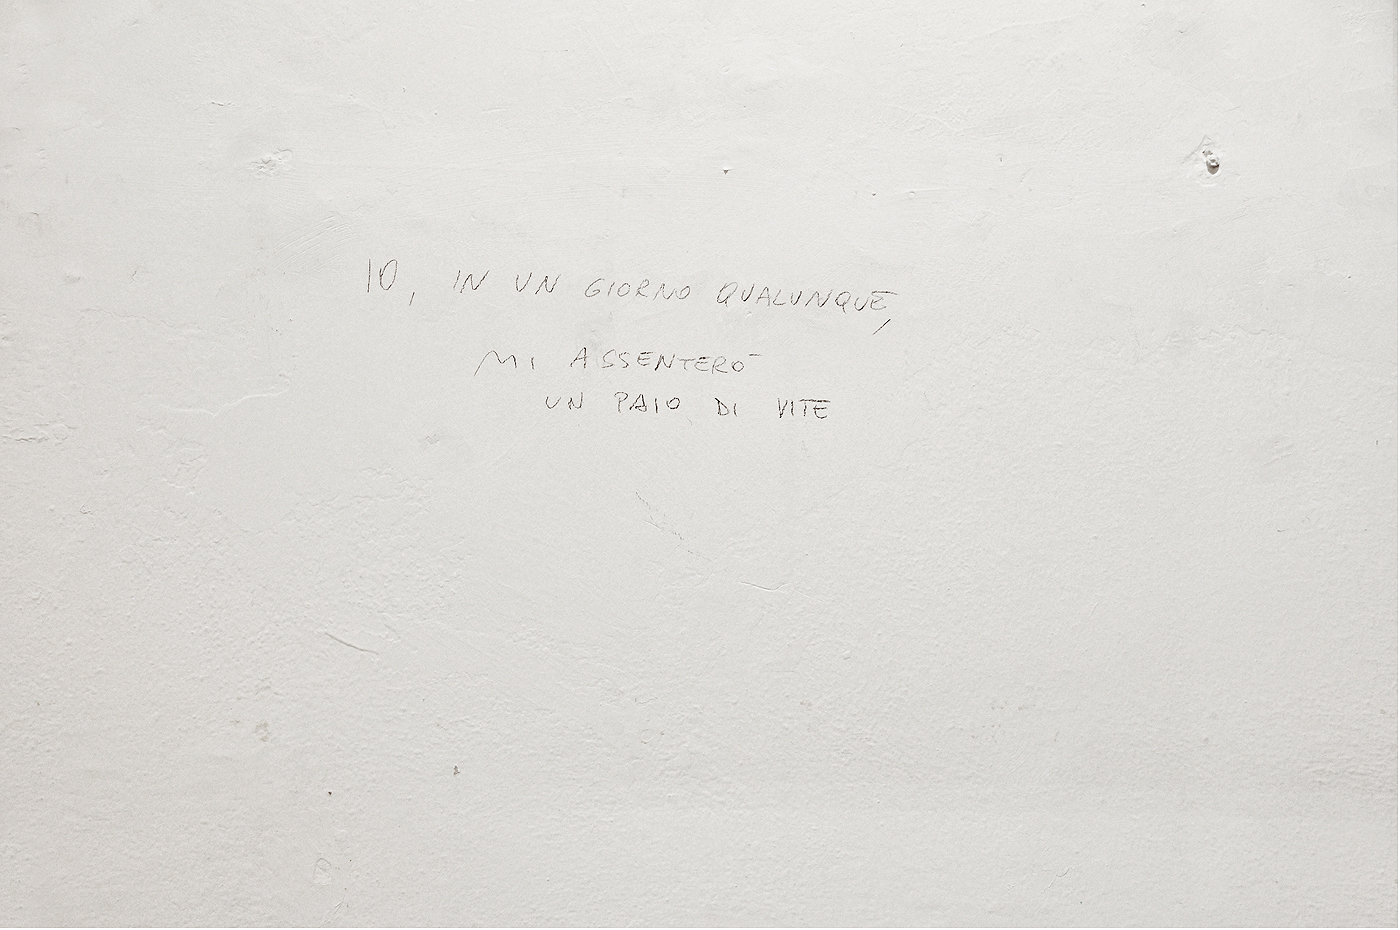 IO, IN UN GIORNO QUALUNQUE,
MI ASSENTERÒ
UN PAIO DI VITE